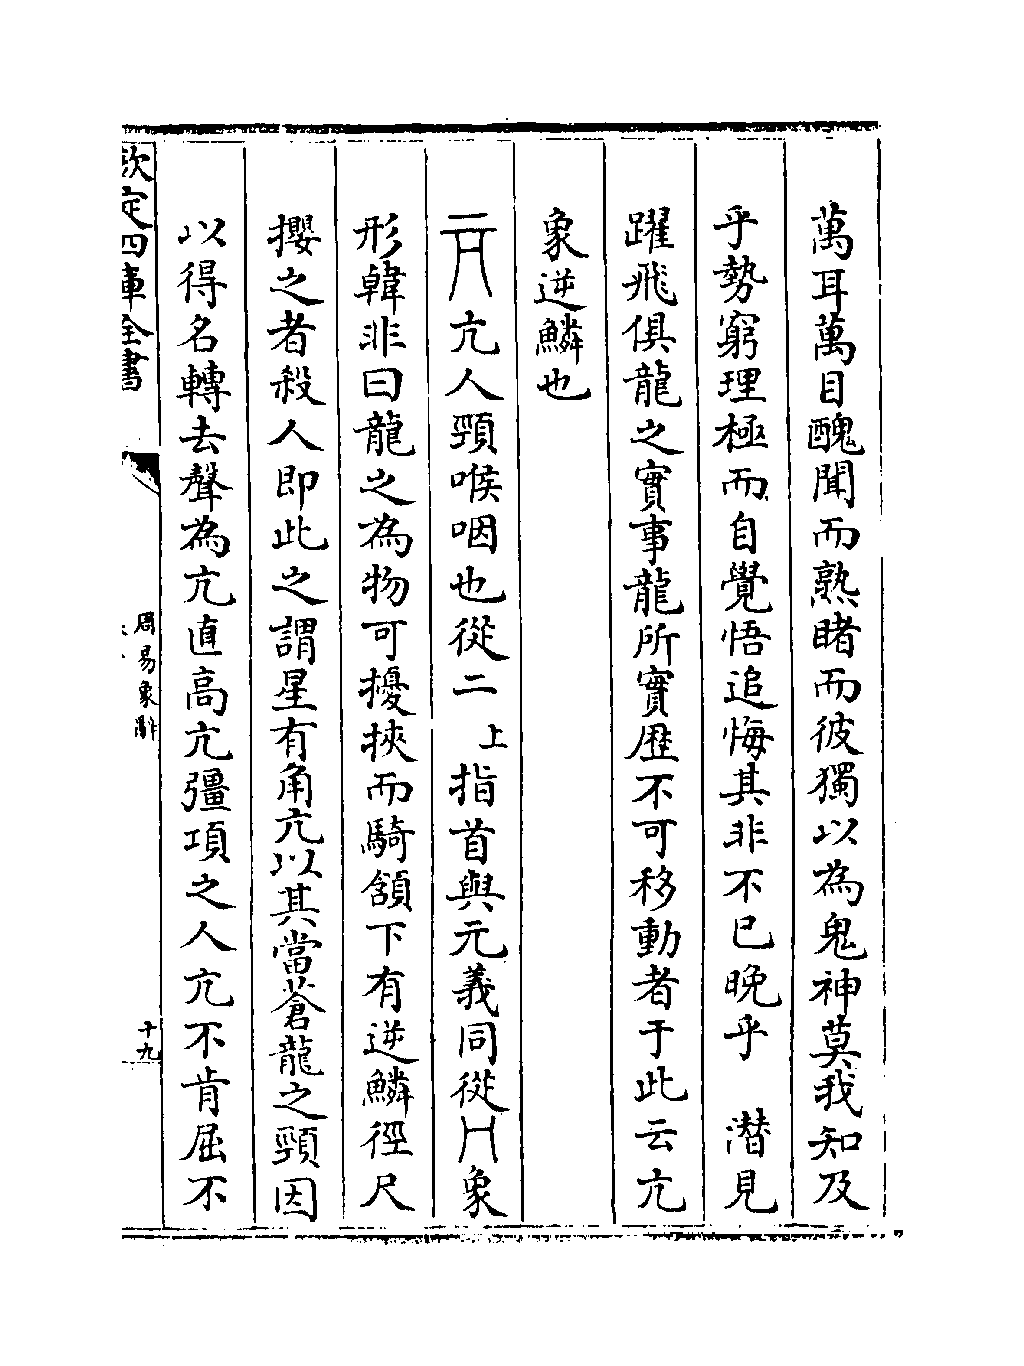 萬耳萬目醜聞而熟睹而彼獨以為鬼神莫我知及
乎勢窮理極而自覺悟追悔其非不已晚乎　潛見
躍飛俱龍之實事龍所實歷不可移動者于此云亢
象逆鱗也
亢人頸喉咽也從二上指首與元義同從冂象
形韓非曰龍之為物可擾挾而騎頷下有逆鱗徑尺
攖之者殺人即此之謂星有角亢以其當蒼龍之頸因
以得名轉去聲為亢直高亢彊項之人亢不肯屈不
欽定四庫全書
周易象辭
十九